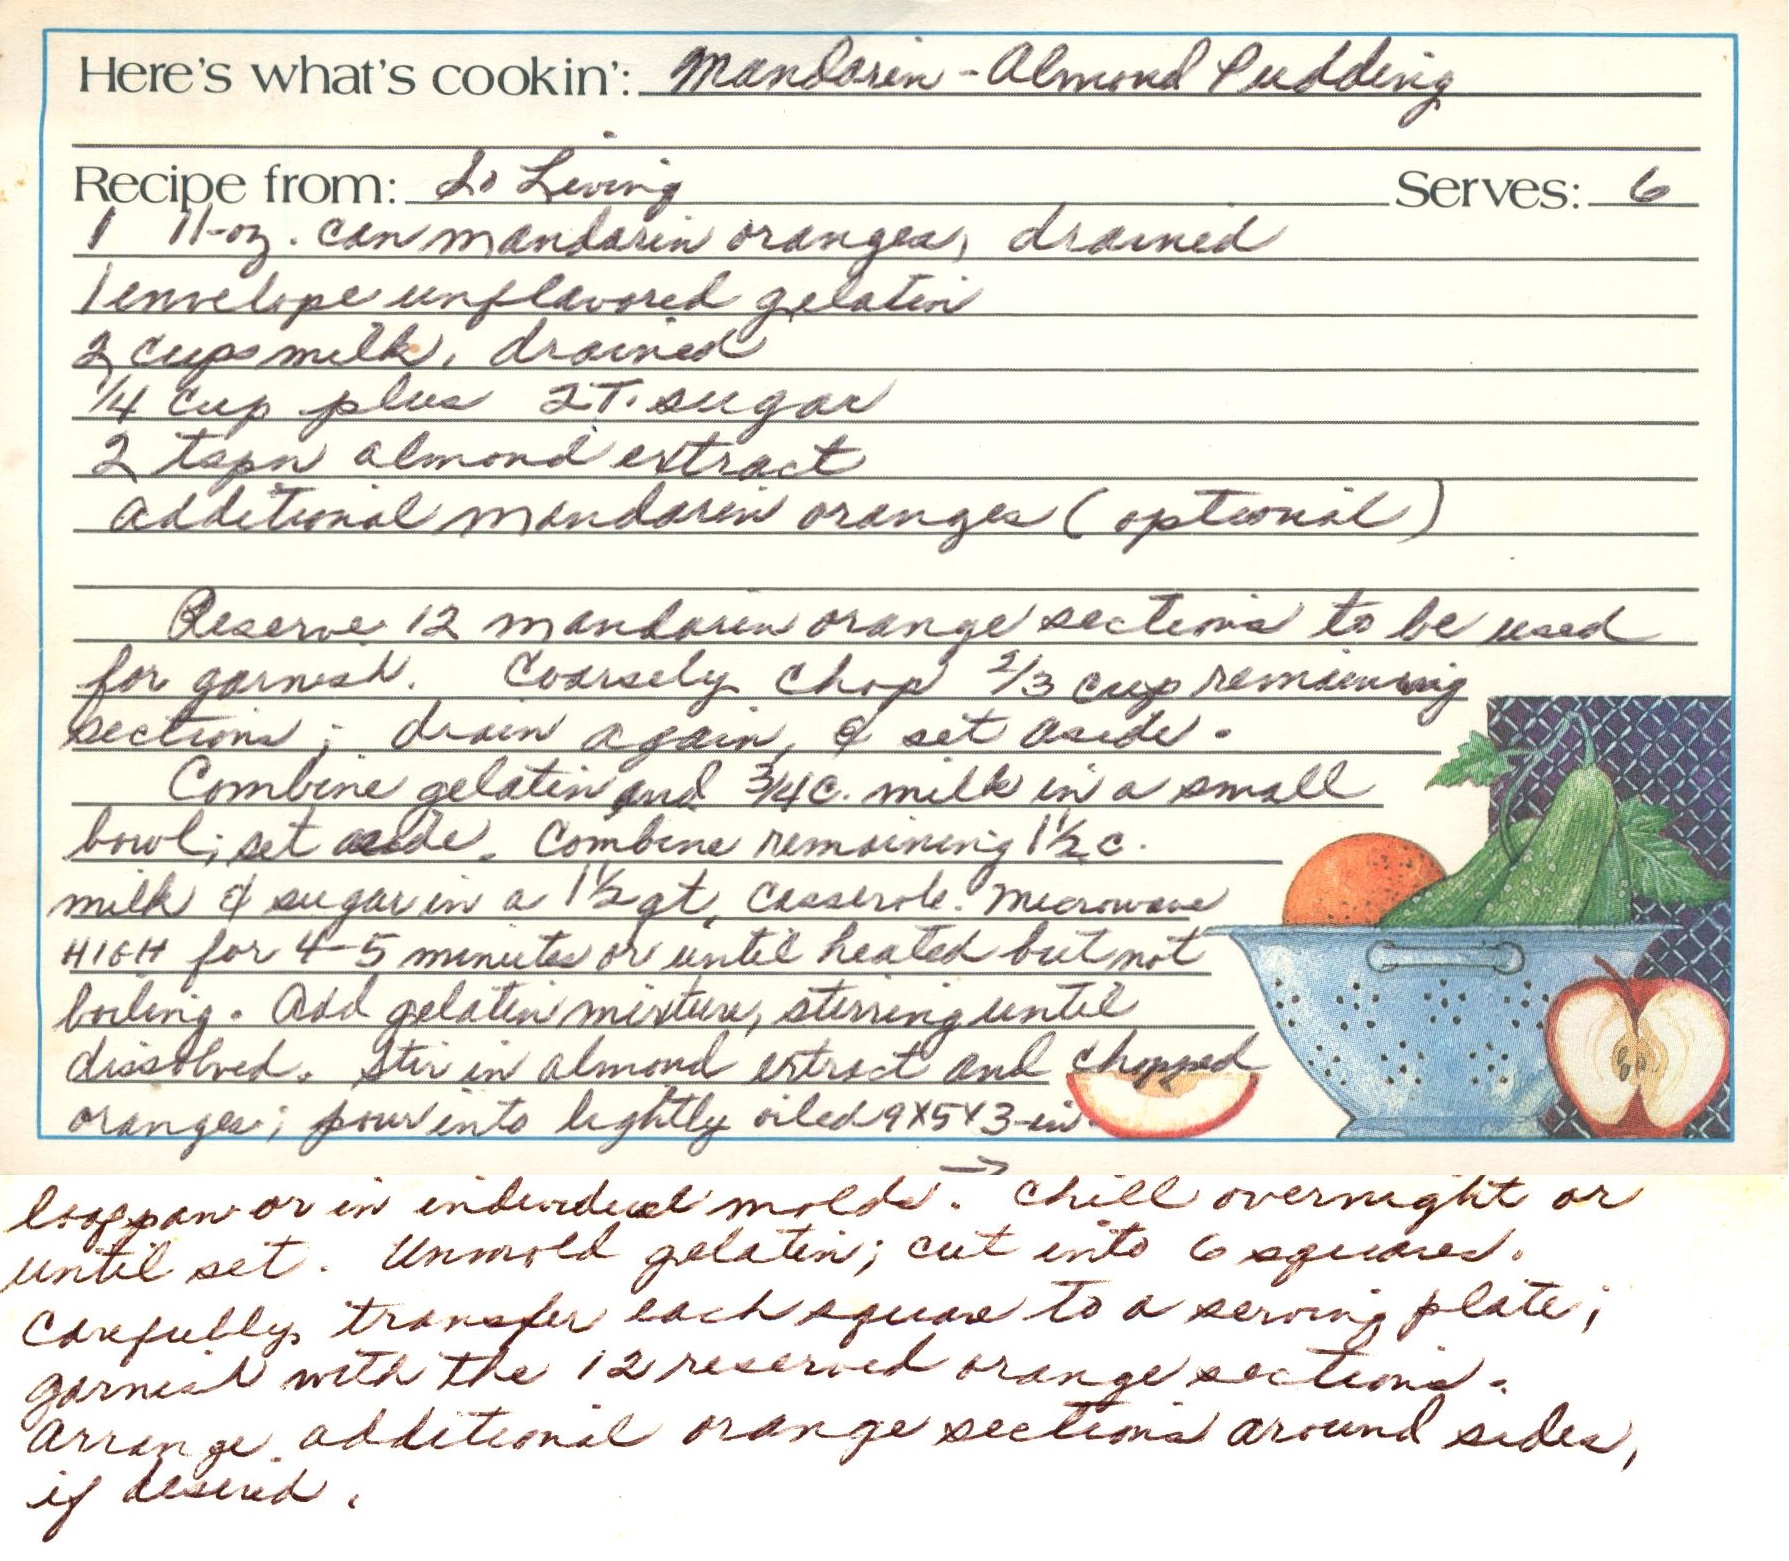 Here's what's cookin': Mandarin-Almond Pudding
Recipe from: So Living Serves: 6
1 11-oz. can mandarin oranges, drained
1 envelope unflavored gelatin
2 cups milk, drained
1/4 cup plus 2 T. sugar
2 tspn almond extract
additional mandarin oranges (optional)
Reserve 12 mandarin orange sections to be used
for garnish. Coarsely chop 2/3 cup remaining
sections; drain again, & set aside.
Combine gelatin and 3/4 c. milk in a small
bowl; set aside. Combine remaining 1 1/2 c.
milk & sugar in a 1 1/2 qt. casserole. Microwave
HIGH for 4-5 minutes or until heated but not
boiling. Add gelatin mixture, stirring until
dissolved. Stir in almond extract and chopped
oranges; pour into lightly oiled 9X5X3-in.
→
loafpan or in individual molds. Chill overnight or
until set. Unmold gelatin; cut into 6 squares.
Carefully transfer each square to a serving plate;
garnish with the 12 reserved orange sections.
Arrange additional orange sections around sides,
if desired.